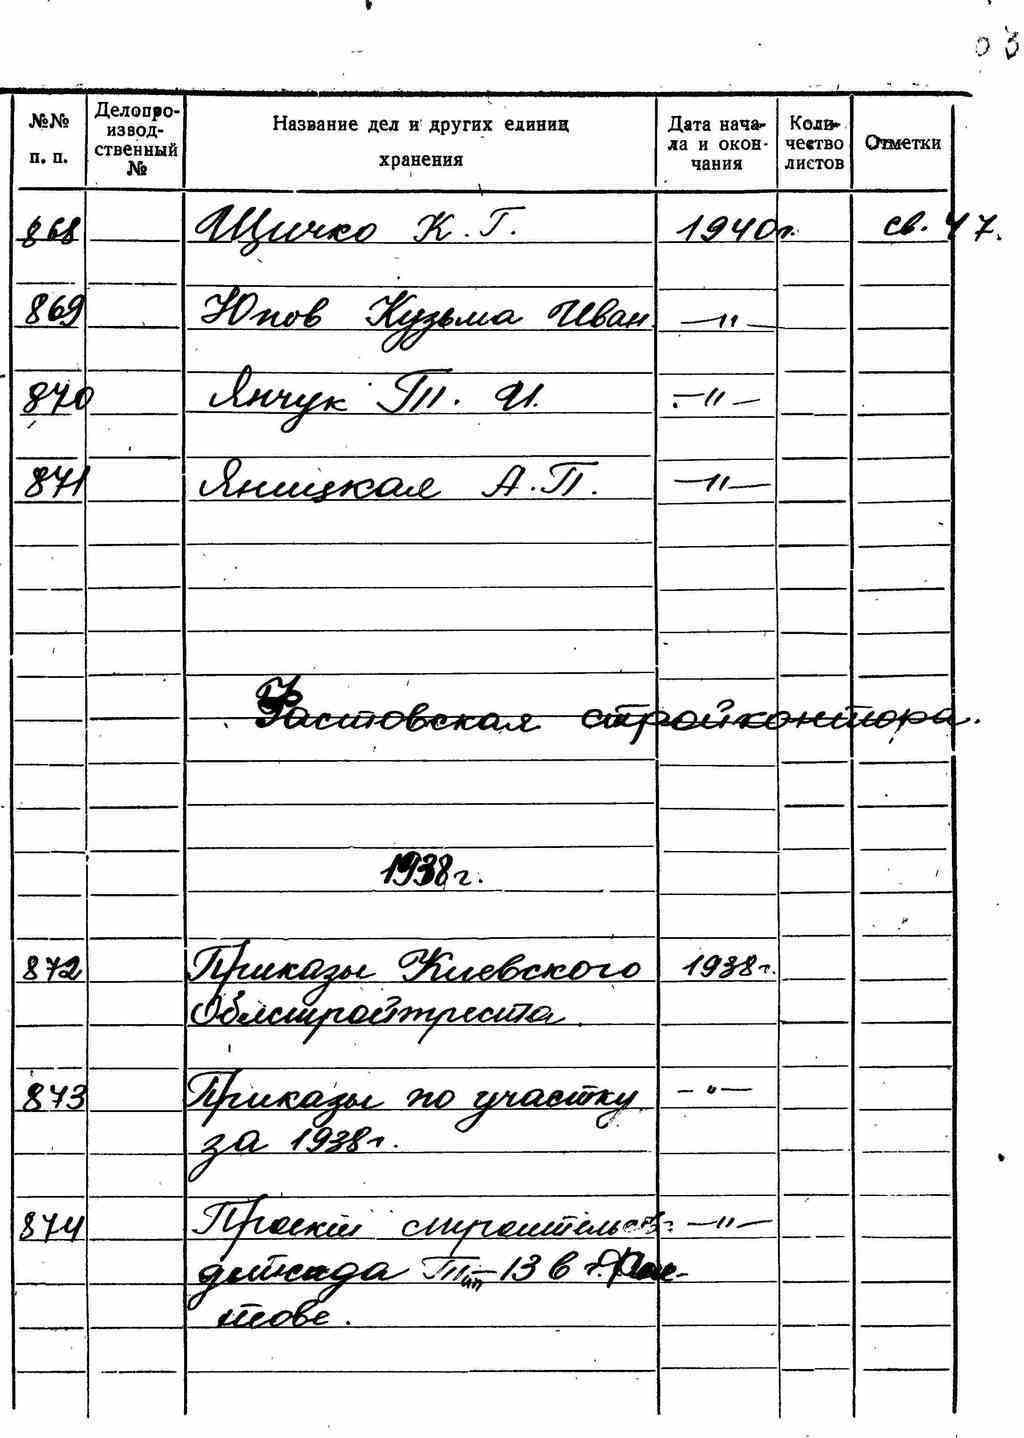 03
№№ п. п. Делопроизводственный № Название дел и других единиц хранения Дата начала и окончания Количество листов Отметки
868 Щичко К. Г. 1940г. св. 47.
869 Юпов Кузьма Иван. —"—
870 Янчук Т. И. —"—
871 Яницкая А. П. —"—
Фастовская стройконтора.
1938г.
872 Приказы Киевского 1938г.
Облстройтреста.
873 Приказы по участку —"—
за 1938г.
874 Проект строительств —"—
детсада Тип-13 в г. Фас-
тове.